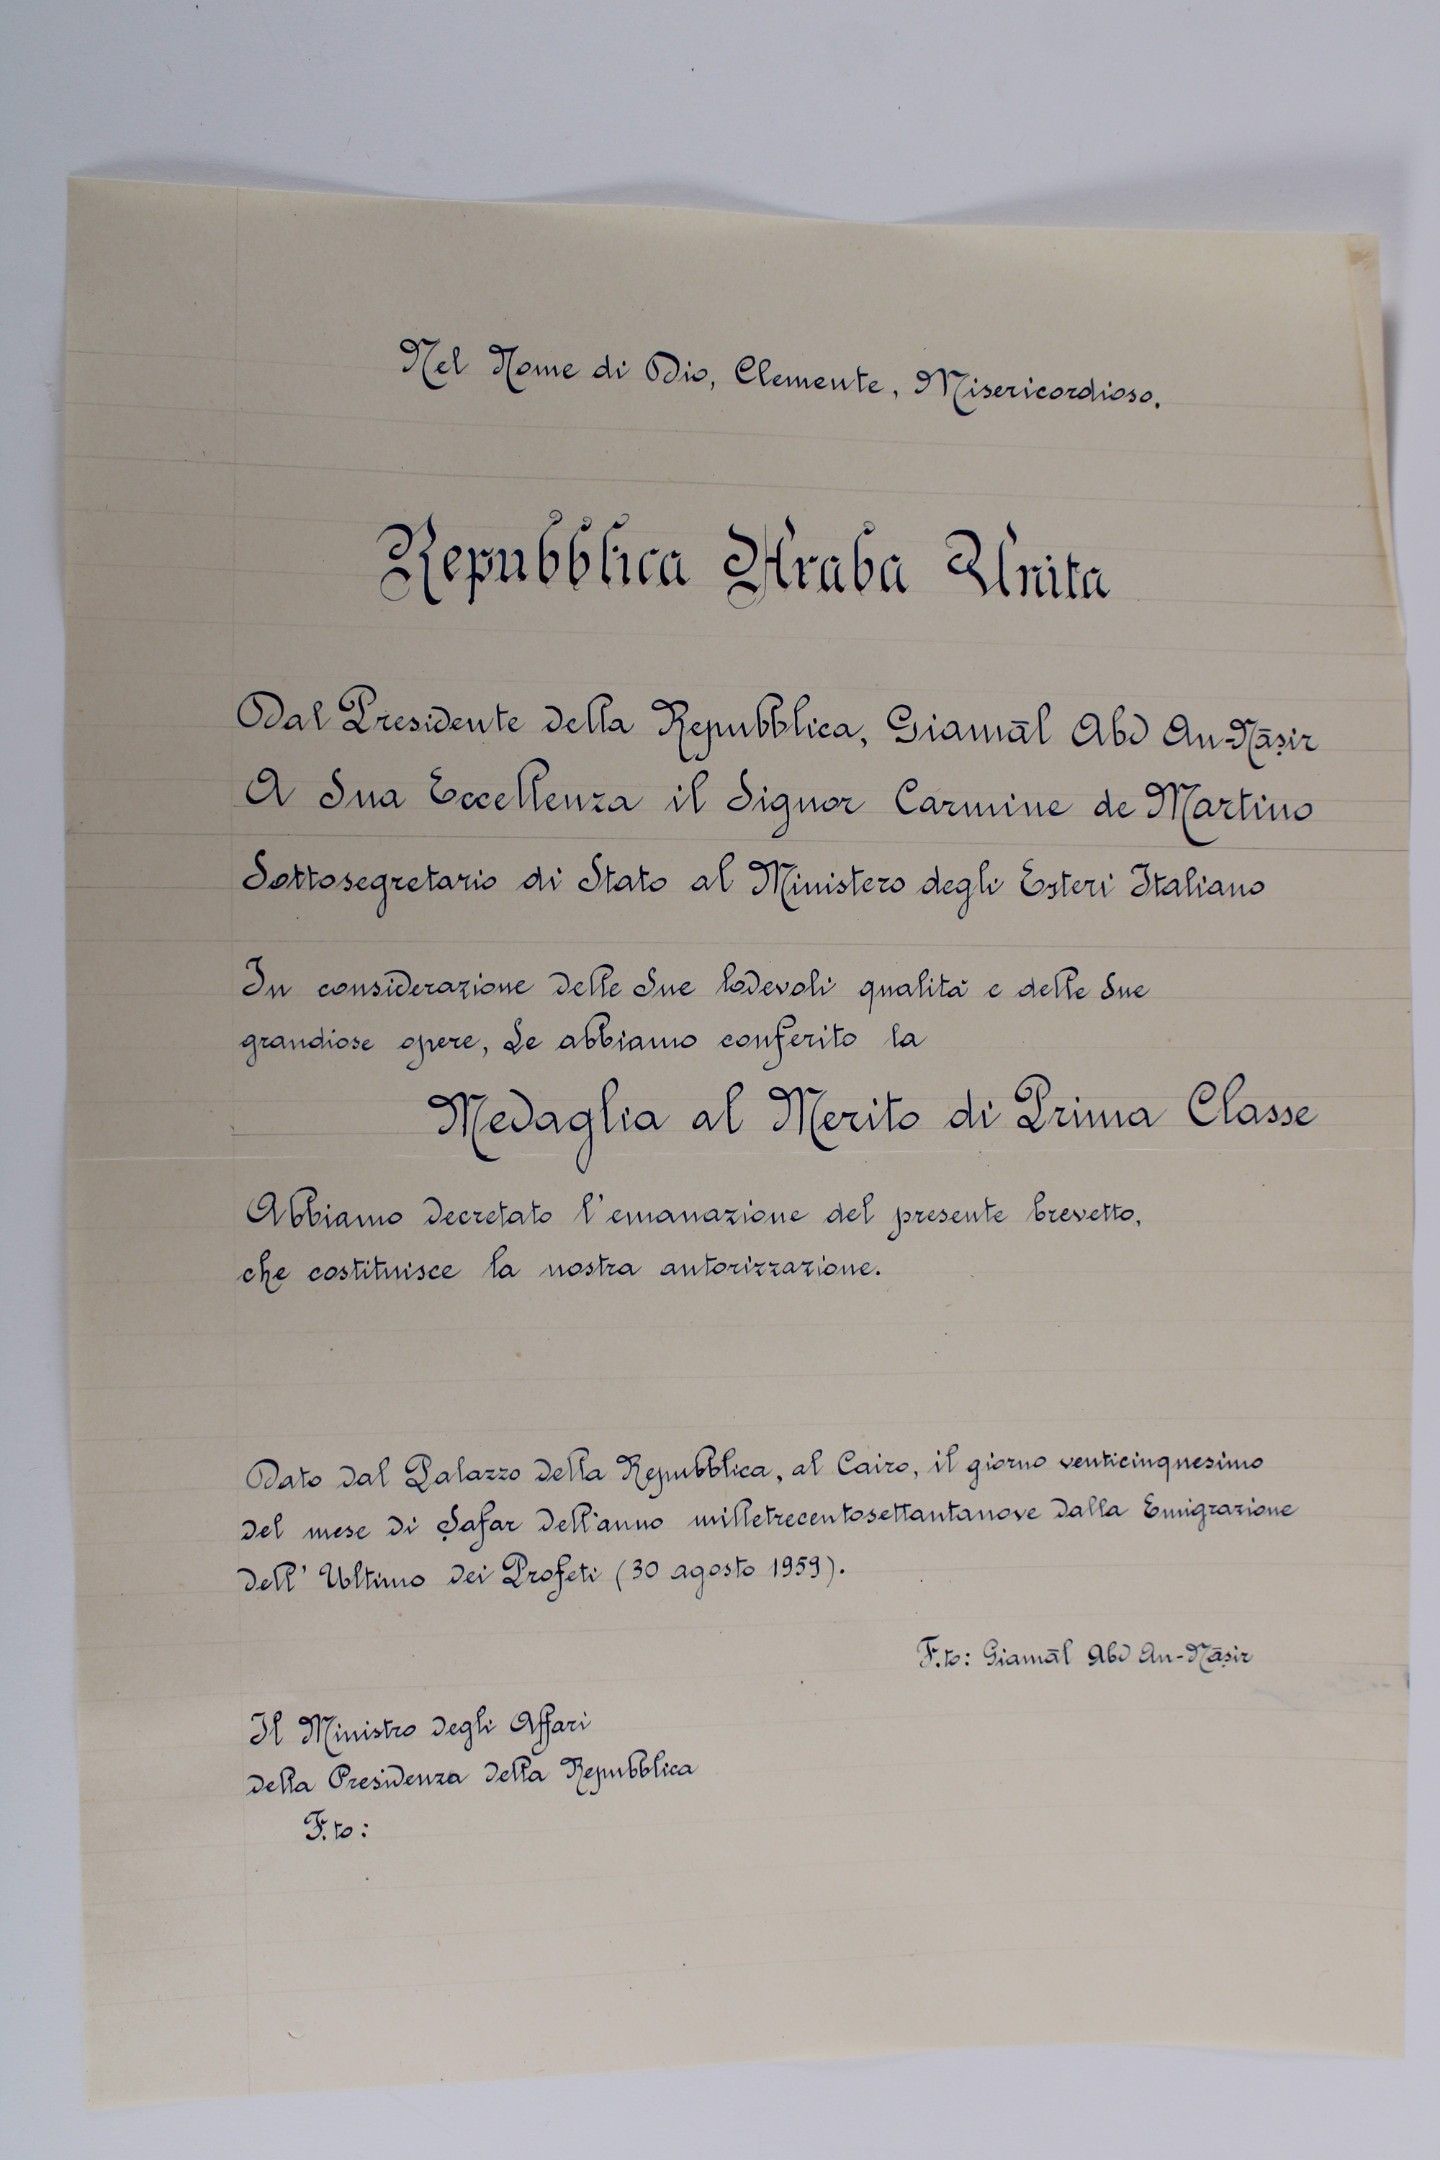 Nel Nome di Dio, Clemente, Misericordioso.
Repubblica Araba Unita
Dal Presidente della Repubblica, Giamāl Abd An-Nāṣir
A Sua Eccellenza il Signor Carmine de Martino
Sottosegretario di Stato al Ministero degli Esteri Italiano
In considerazione delle Sue lodevoli qualità e delle Sue
grandiose opere, Le abbiamo conferito la
Medaglia al Merito di Prima Classe
Abbiamo decretato l'emanazione del presente brevetto,
che costituisce la nostra autorizzazione.
Dato dal Palazzo della Repubblica, al Cairo, il giorno venticinquesimo
del mese di Ṣafar dell'anno milletrecentosettantanove dalla Emigrazione
dell' Ultimo dei Profeti (30 agosto 1959).
F.to: Giamāl Abd An-Nāṣir
Il Ministro degli Affari
della Presidenza della Repubblica
F.to: